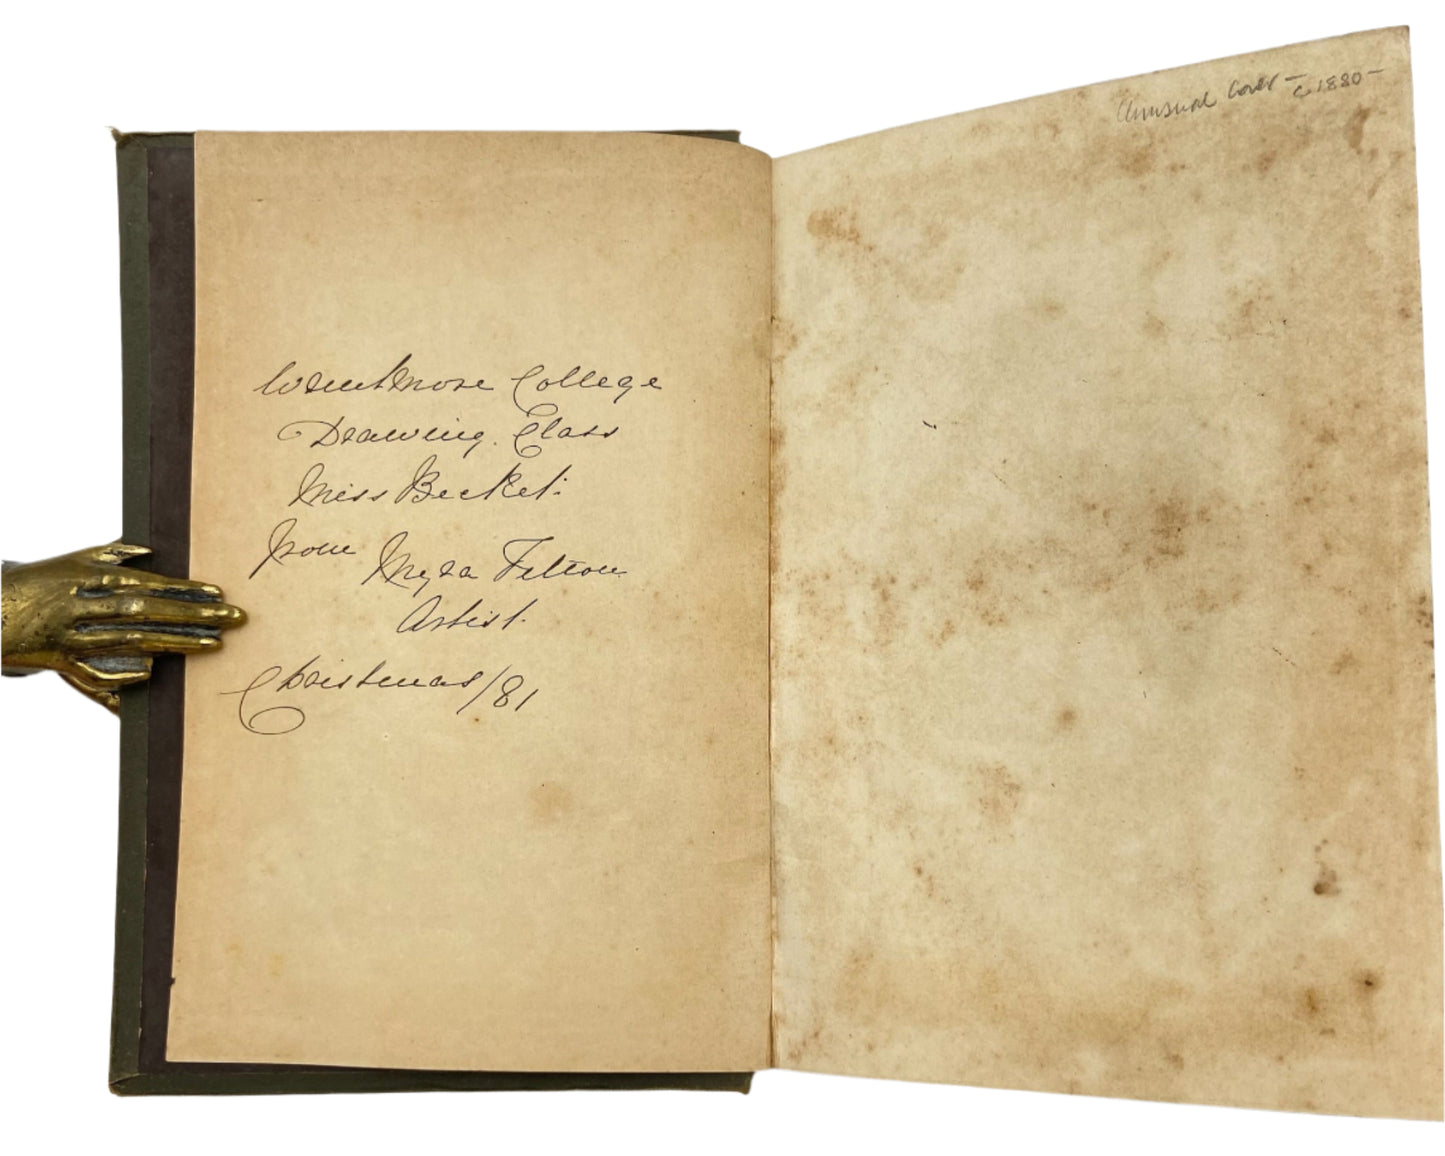 College
Drawing Class
Miss Becket.
from
Myra Felton
Artist.
Christmas/81
Unusual Cover – c 1880 –